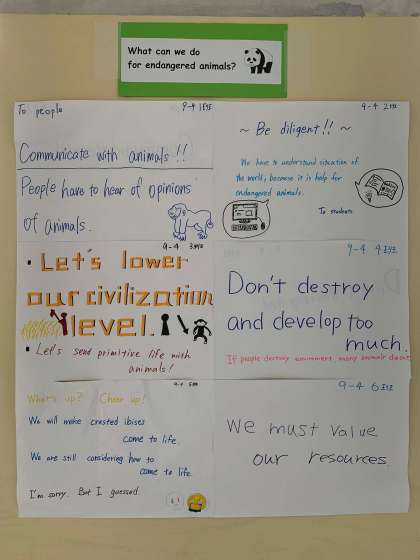 What can we do
for endangered animals?
To people
9-4 1班
Communicate with animals!!
People have to hear of opinions
of animals.
9-4 2班
~ Be diligent!! ~
We have to understand situation of
the world, because it is help for
endangered animals.
To students
9-4 3班
• Let's lower
our civilization
level.
• Let's send primitive life with
animals!
9-4 4班
Don't destroy
and develop too
much.
If people destroy enviroment, many animals doesn't
9-4 5班
What's up? Cheer up!
We will make crested ibises
come to life.
We are still considering how to
come to life.
I'm sorry. But I guessed.
9-4 6班
We must value
our resources